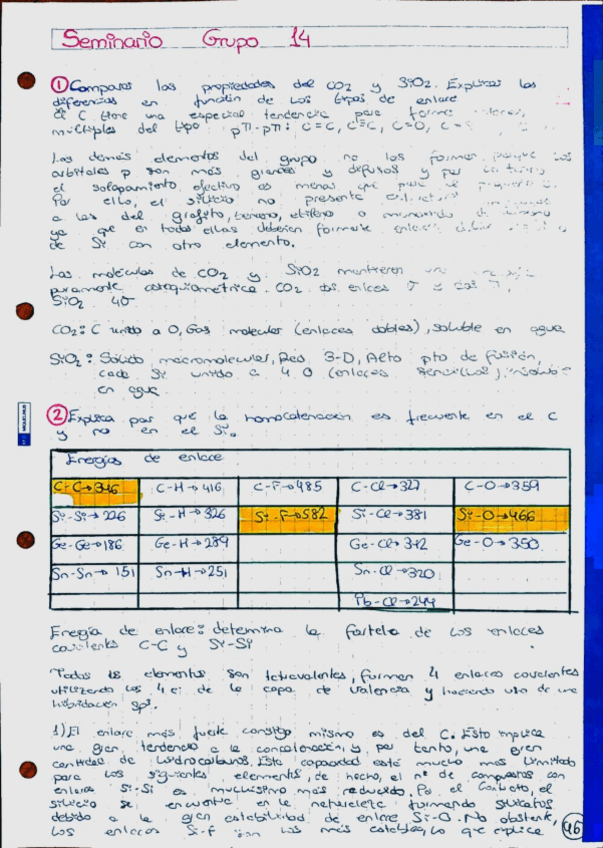 Seminario Grupo 14
① Comparar las propiedades del CO2 y SiO2. Explicar las
diferencias en función de los tipos de enlace
El C tiene una especial tendencia para formar
múltiples del tipo pπ-pπ: C=C, C≡C, C=O, C
Los demás elementos del grupo no los forman porque los
orbitales p son más grandes y difusos y por
el solapamiento efectivo es menor que para el
Por ello, el silicio no presenta
a las del grafito, benceno, etileno o
ya que en todas ellas deberían formarse
de Si con otro elemento.
Las moléculas de CO2 y SiO2 mantienen una
puramente estequiométrica. CO2 dos enlaces σ y dos π,
SiO2 4σ
CO2: C unido a O, Gas molecular (enlaces dobles), soluble en agua
SiO2: Sólido macromolecular, Red 3-D, Alto pto de fusión,
cada Si unido a 4 O (enlaces sencillos), insoluble
en agua.
② Explica por que la homocatenación es frecuente en el C
y no en el Si.
Energías de enlace
C-C→346 C-H→416 C-F→485 C-Cl→327 C-O→359
Si-Si→226 Si-H→326 Si-F→582 Si-Cl→381 Si-O→466
Ge-Ge→186 Ge-H→289 Ge-Cl→342 Ge-O→350
Sn-Sn→151 Sn-H→251 Sn-Cl→320
Pb-Cl→244
Energía de enlace: determina la fortaleza de los enlaces
covalentes C-C y Si-Si
Todos los elementos son tetravalentes, forman 4 enlaces covalentes
utilizando los 4 e- de la capa de valencia y haciendo uso de una
hibridación sp3.
1) El enlace más fuerte consigo mismo es del C. Esto implica
una gran tendencia a la concatenación y por tanto, una gran
cantidad de hidrocarburos. Esta capacidad está mucho más limitada
para los siguientes elementos, de hecho, el nº de compuestos con
enlaces Si-Si es muchísimo más reducido. Por el contrario, el
silicio se encuentra en la naturaleza formando silicatos
debido a la gran estabilidad de enlace Si-O. No obstante,
los enlaces Si-F son los más estables, lo que explica
46